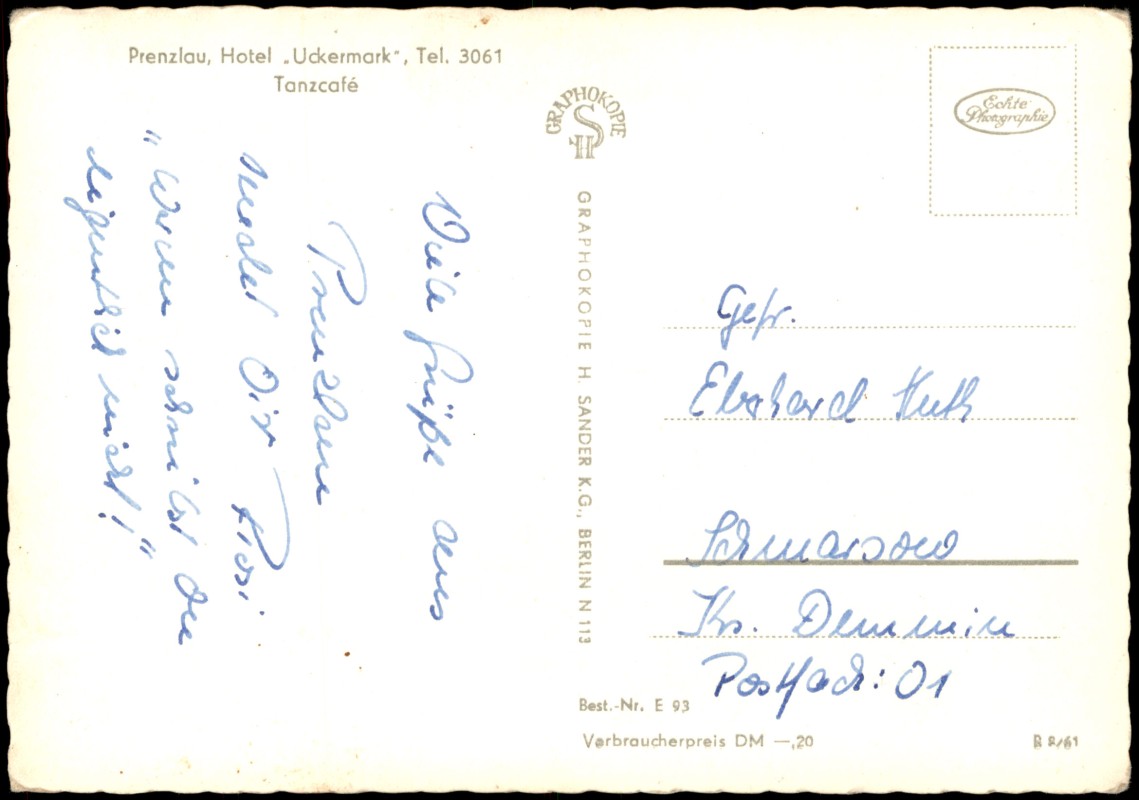 Prenzlau, Hotel „Uckermark", Tel. 3061
Tanzcafé
Viele Grüße aus
Prenzlau
sendet Dir Rosi
"Warum schreibst Du
eigentlich nicht!"
GRAPHOKOPIE
H S
GRAPHOKOPIE H. SANDER K.G., BERLIN N 113
Echte
Photographie
Gefr.
Eberhard Huth
Schmarsow
Krs. Demmin
Postfach: 01
Best.-Nr. E 93
Verbraucherpreis DM —,20
R 8/61